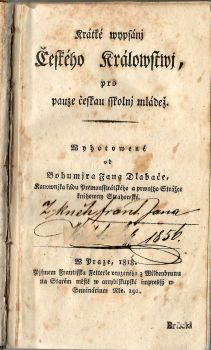 Krátké wypsánj
Českého Králowstwj,
pro
pauze českau sskolnj mládež.
Wyhotowené
od
Bohumjra Jana Dlabače,
Kanownjka řádu Premonstrátského a prwnjho Strážce
knihowny Strahowské.
Z kněh Frant. Jana
1856.
W Praze, 1818.
Pjsmem Frantisska Fetterle wrozeného z Wildenbrunu
na Starém městě w arcybiskupské impressj w
Seminárium Nro. 190.